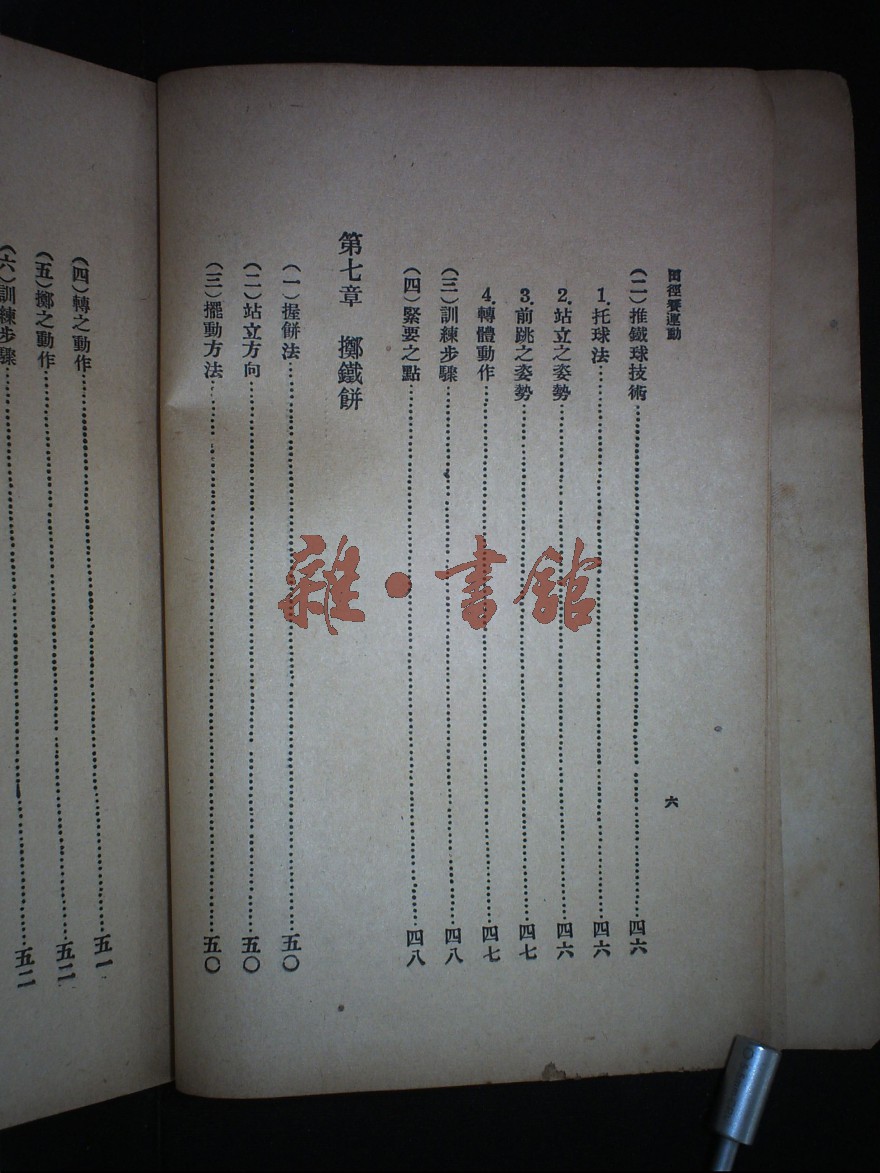 田徑賽運動
六
(二)推鐵球技術……四六
1.托球法……四六
2.站立之姿勢……四六
3.前跳之姿勢……四七
4.轉體動作……四七
(三)訓練步驟……四八
(四)緊要之點……四八
第七章 擲鐵餅
(一)握餅法……五〇
(二)站立方向……五〇
(三)擺動方法……五〇
(四)轉之動作……五一
(五)擲之動作……五二
(六)訓練步驟……五二
雜·書館